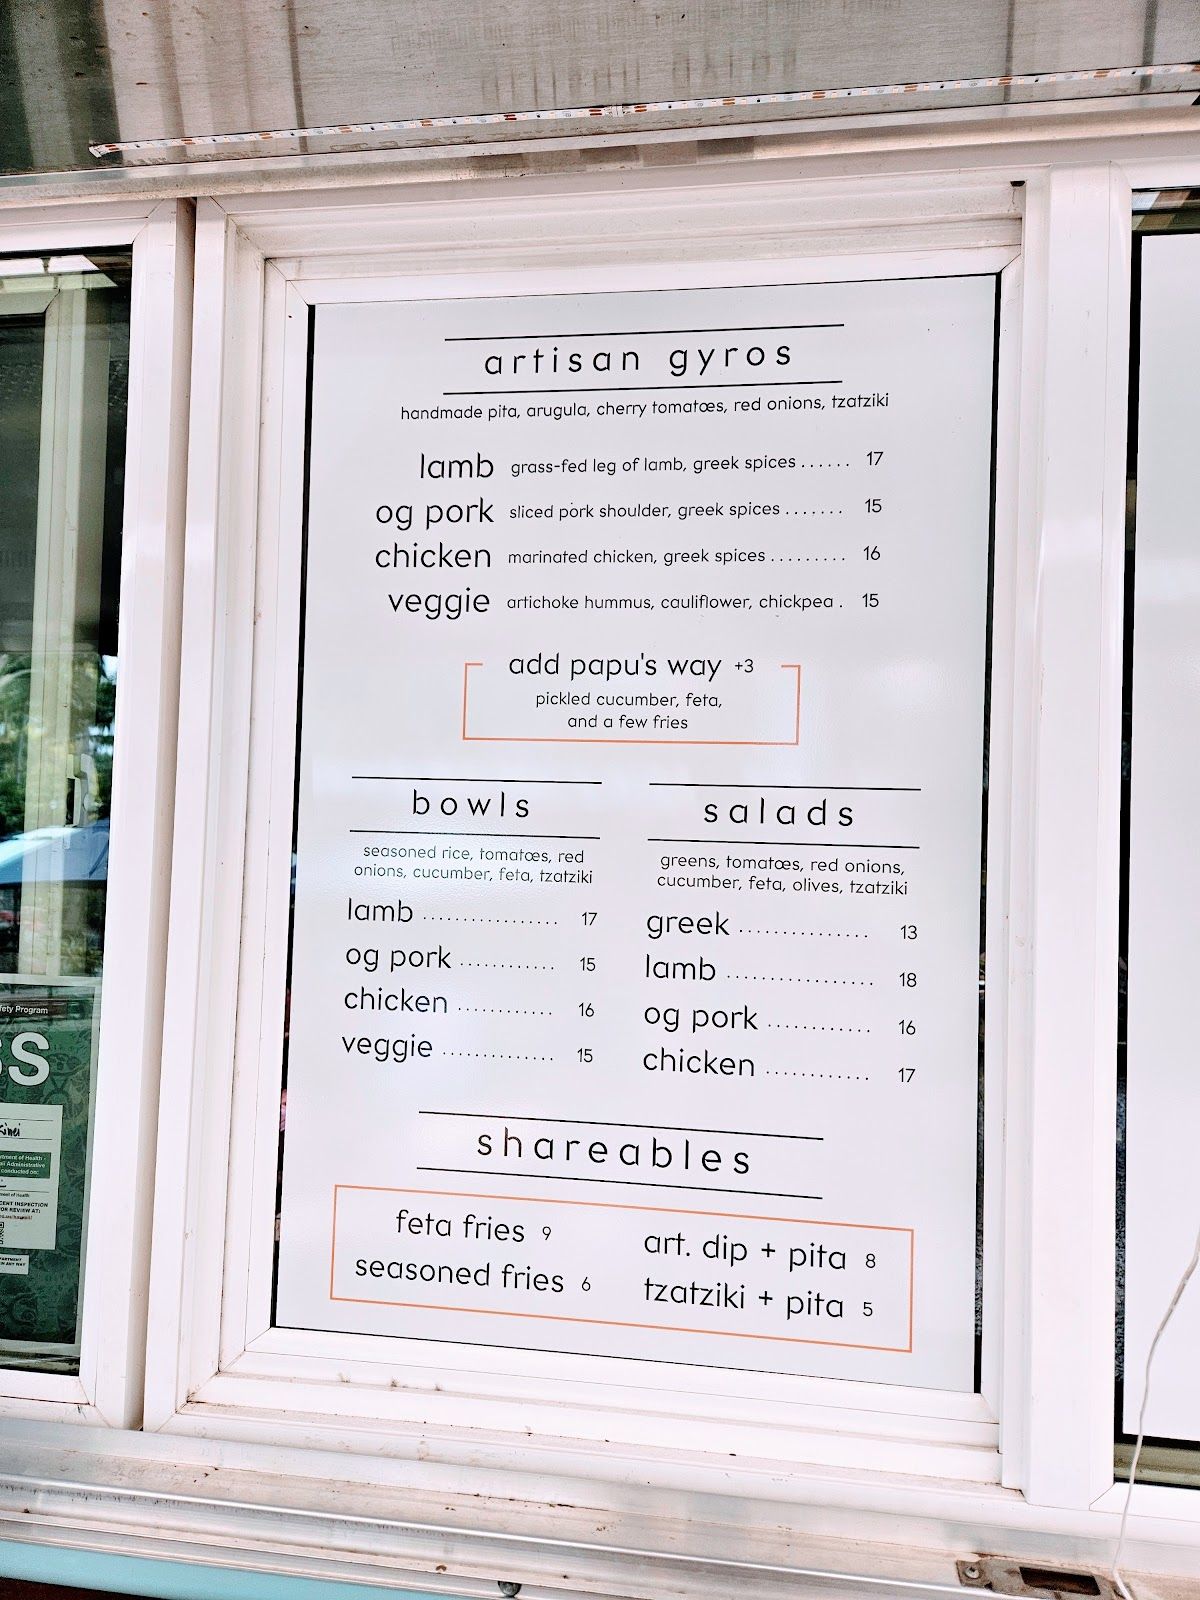 artisan gyros
handmade pita, arugula, cherry tomatœs, red onions, tzatziki
lamb grass-fed leg of lamb, greek spices ...... 17
og pork sliced pork shoulder, greek spices ....... 15
chicken marinated chicken, greek spices ......... 16
veggie artichoke hummus, cauliflower, chickpea . 15
add papu's way +3
pickled cucumber, feta,
and a few fries
bowls
seasoned rice, tomatœs, red
onions, cucumber, feta, tzatziki
lamb ................. 17
og pork ............ 15
chicken ............ 16
veggie .............. 15
salads
greens, tomatœs, red onions,
cucumber, feta, olives, tzatziki
greek ............... 13
lamb ................. 18
og pork ............ 16
chicken ............ 17
shareables
feta fries 9
seasoned fries 6
art. dip + pita 8
tzatziki + pita 5
Program
SS